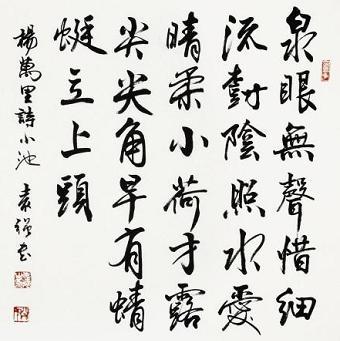 泉眼無聲惜細
流樹陰照水愛
晴柔小荷才露
尖尖角早有蜻
蜓立上頭
楊萬里詩小池 袁強书